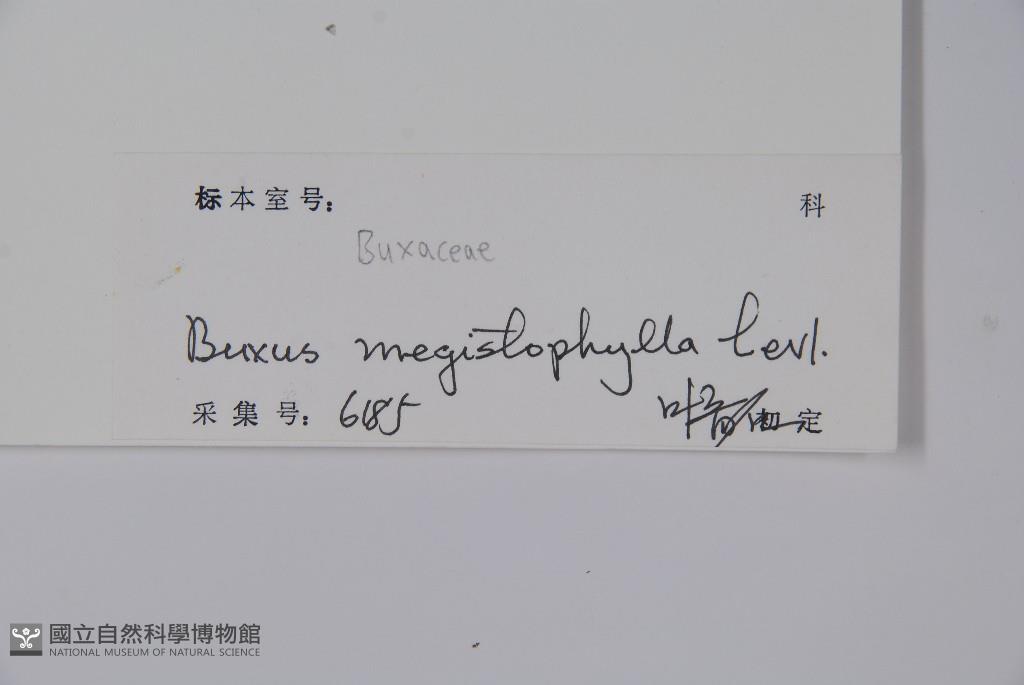 标本室号： 科
Buxaceae
Buxus megistophylla Levl.
采集号： 6185 初定
國立自然科學博物館
NATIONAL MUSEUM OF NATURAL SCIENCE